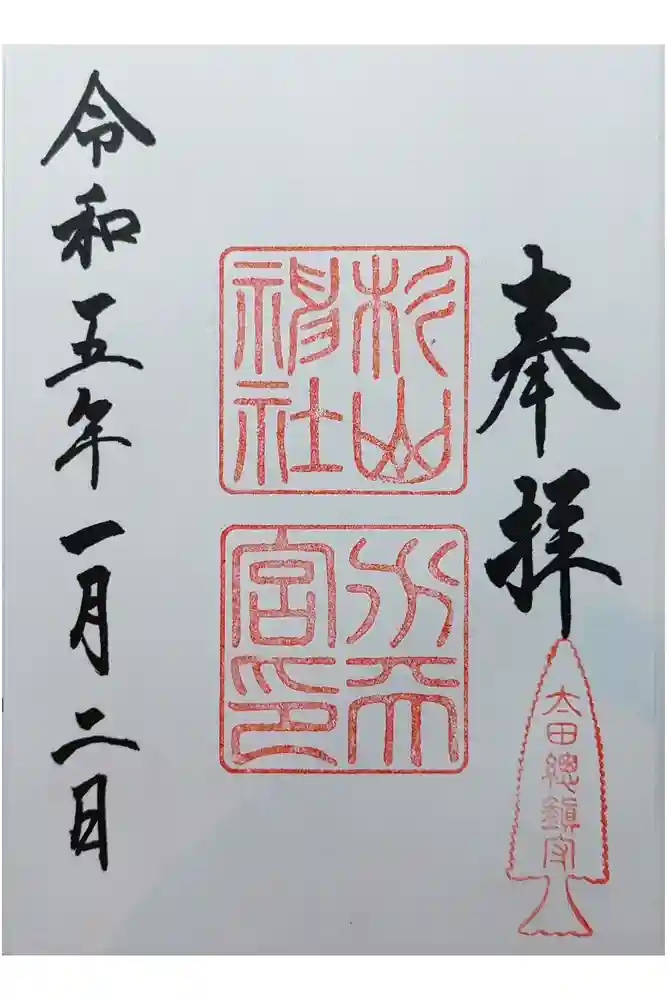 奉拝
太田總鎮守
杉山
神社
水天
宮印
令和五年一月二日